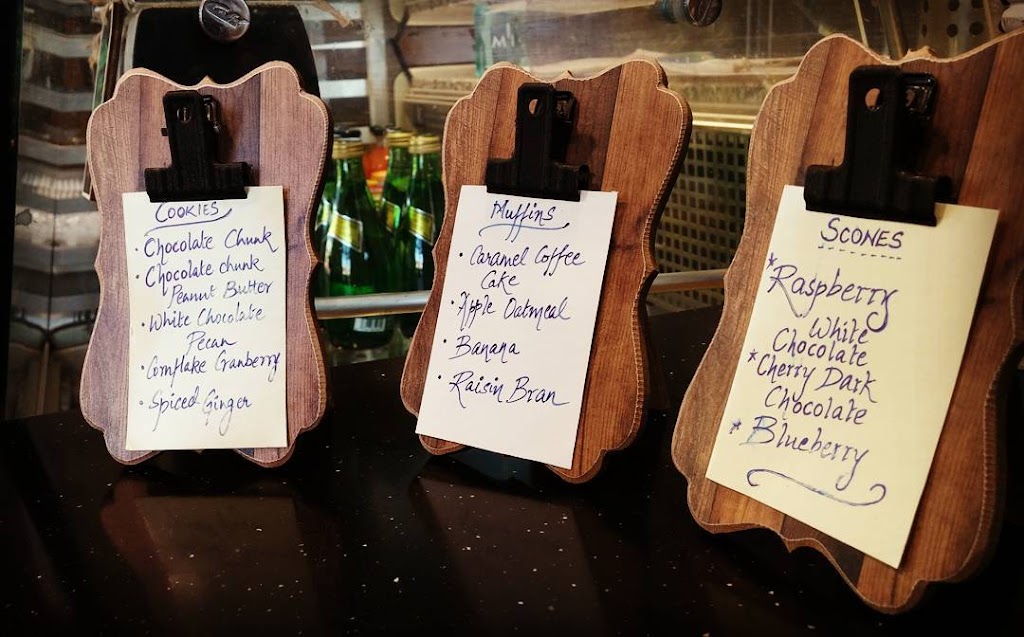 COOKIES
• Chocolate Chunk
• Chocolate chunk
Peanut Butter
• White Chocolate
Pecan
• Cornflake Cranberry
• Spiced Ginger
Muffins
• Caramel Coffee
Cake
• Apple Oatmeal
• Banana
• Raisin Bran
SCONES
* Raspberry
White
Chocolate
* Cherry Dark
Chocolate
* Blueberry